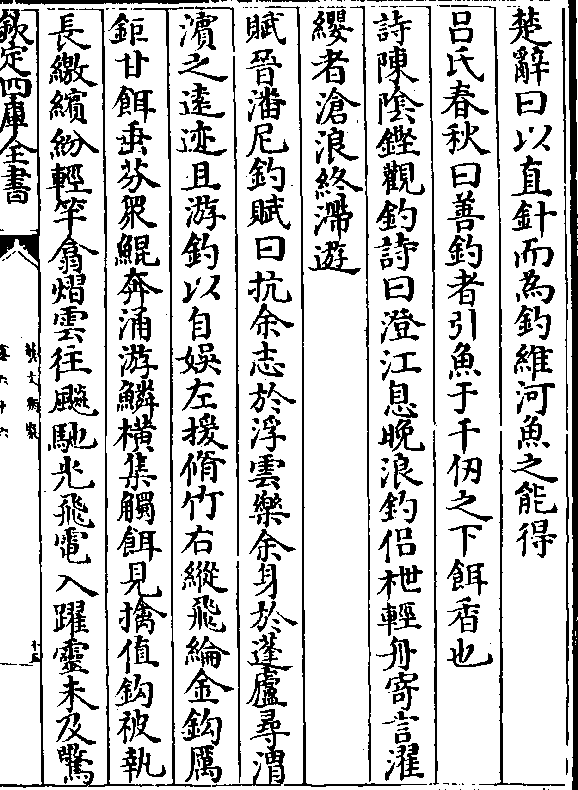 楚辭曰以直針而為釣維河魚之能得
吕氏春秋曰善釣者引魚于千仭之下餌香也
詩陳陰鏗觀釣詩曰澄江息晚浪釣侶枻輕舟寄言濯
纓者滄浪終滯遊
賦晉潘尼釣賦曰抗余志於浮雲樂余身於蓬廬尋渭
濱之遠迹且游釣以自娛左援脩竹右縱飛綸金鈎厲
鉅甘餌垂芬衆鯤奔涌游鱗橫集觸餌見擒值鈎被執
長繳繽紛輕竿翕熠雲往飈馳光飛電入躍靈未及驚
欽定四庫全書
藝文類聚
卷六十六